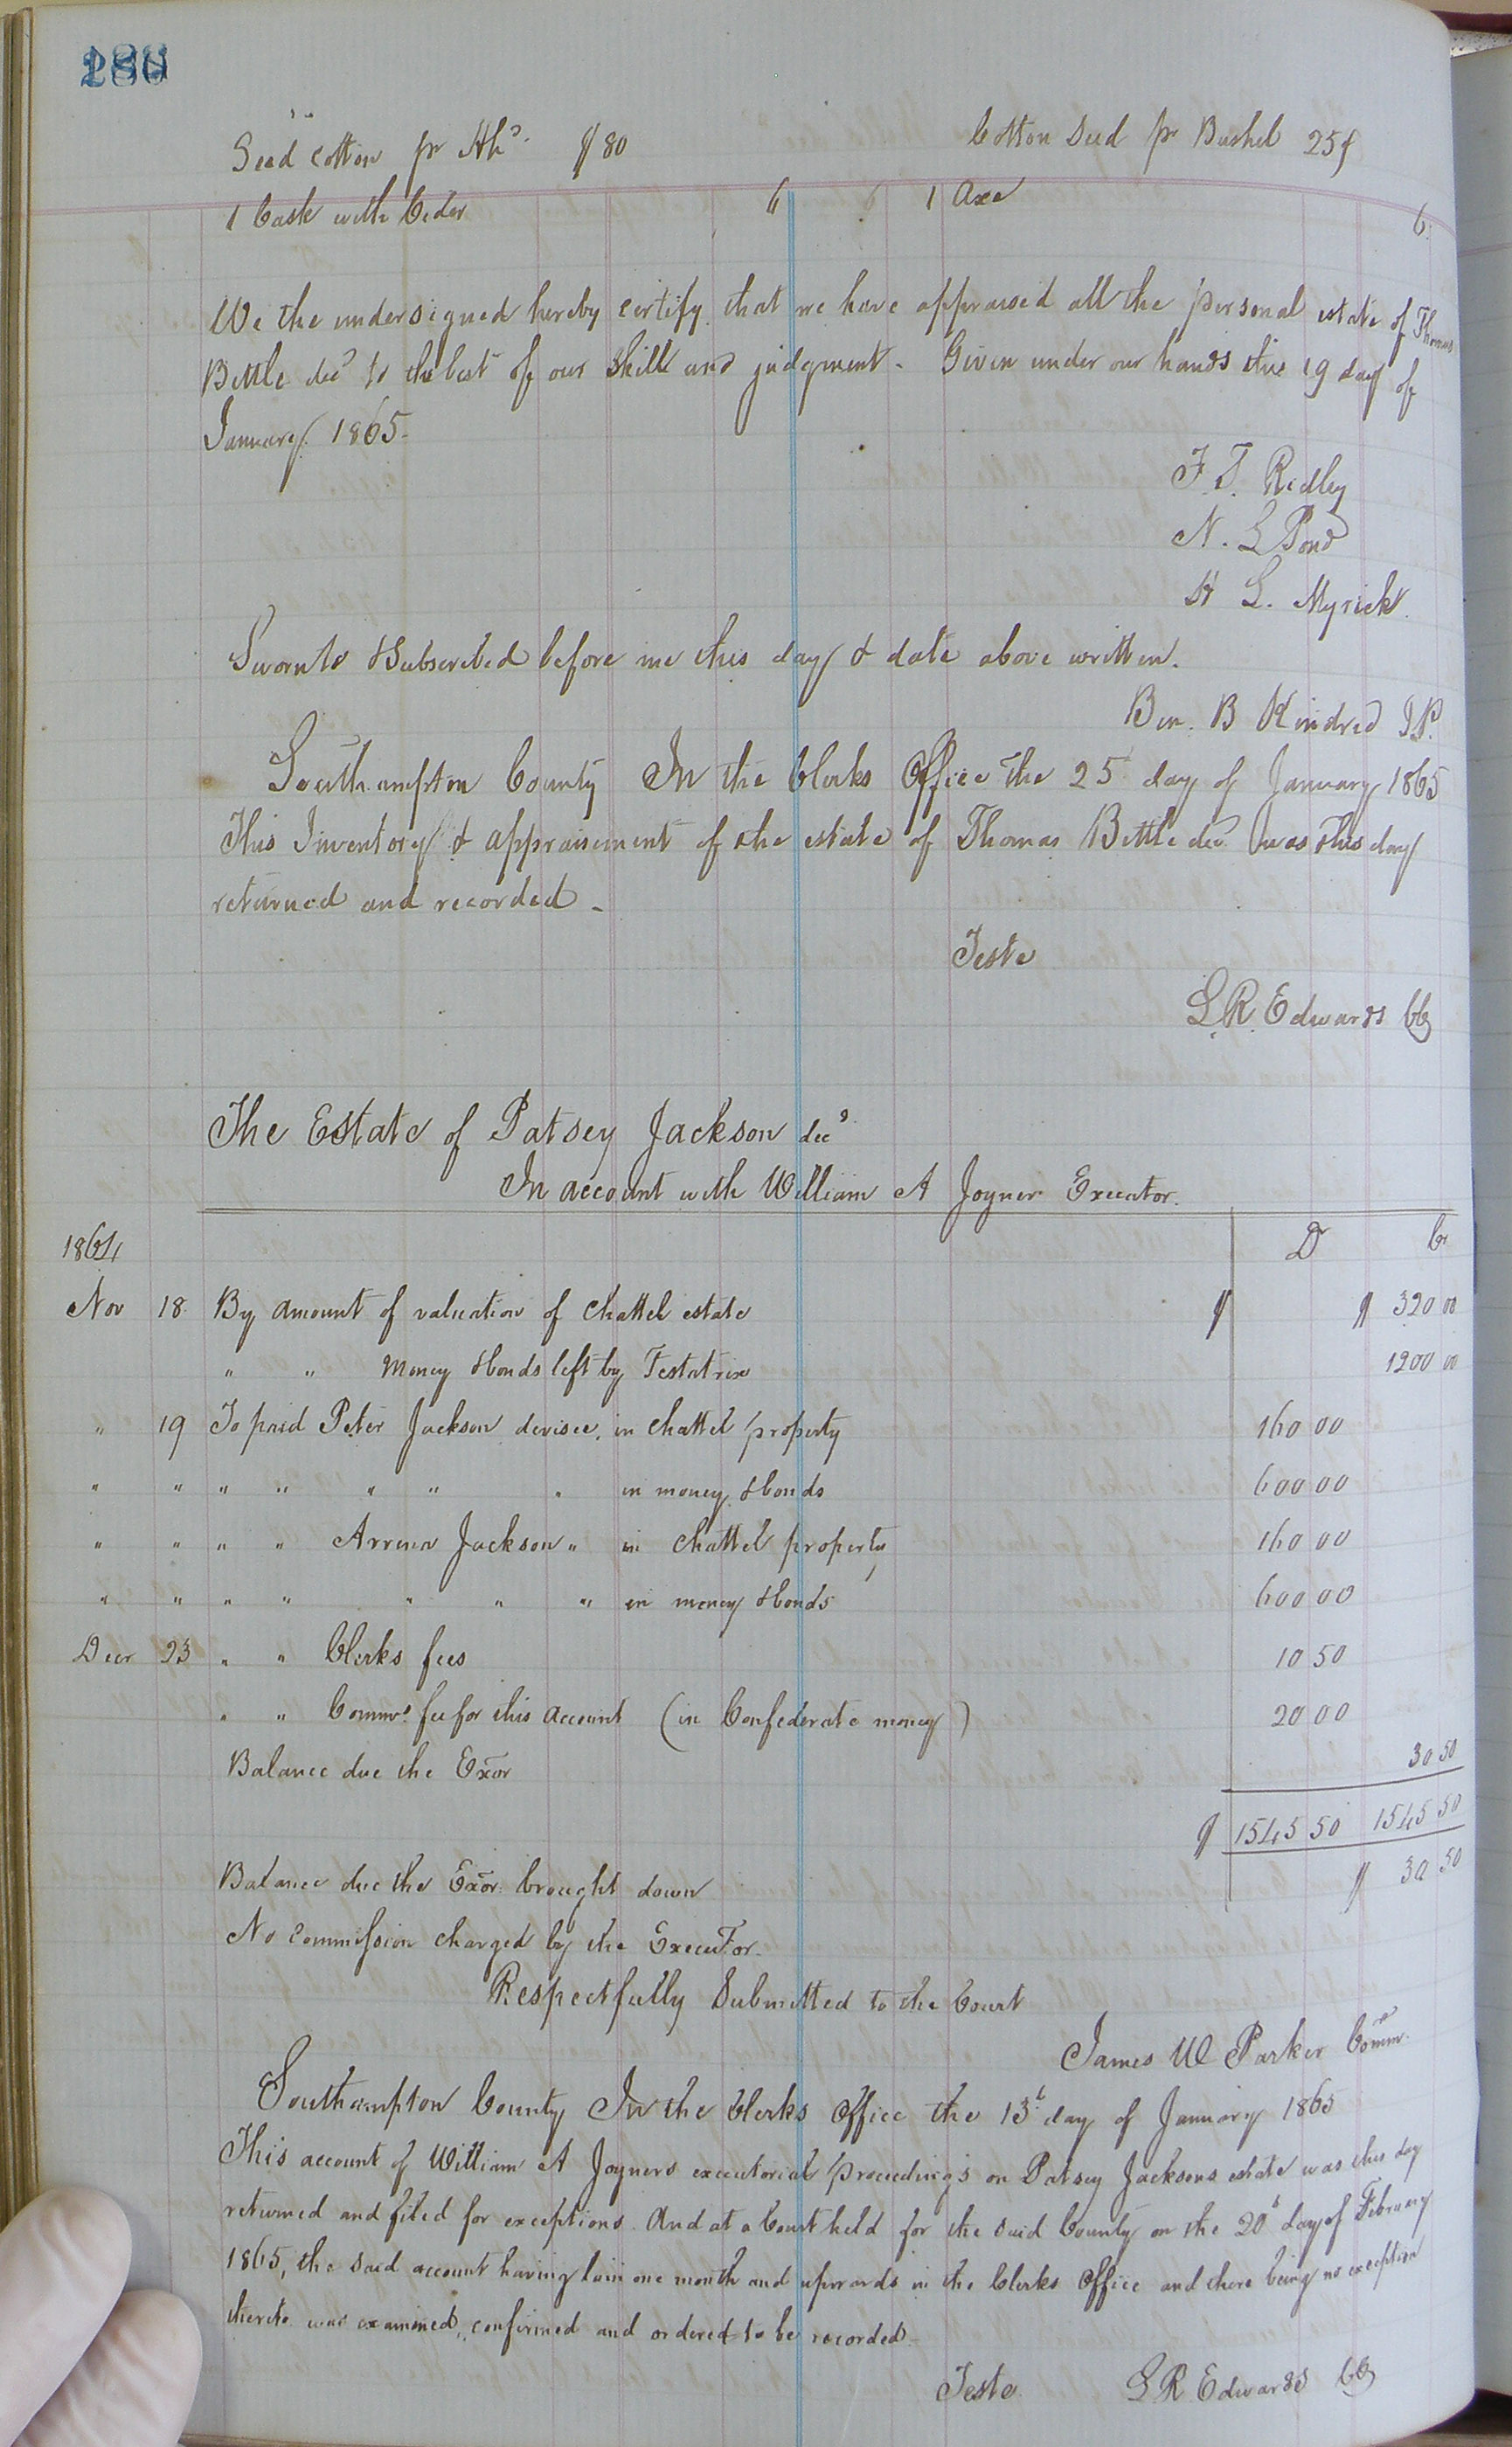 Seed Cotton pr $80 Cotton Seed pr Bushel 25¢
1 Cask with Cider 6 1 Axe 6
We the undersigned hereby certify that we have appraised all the personal estate of Thomas
Bittle decd to the best of our skill and judgment. Given under our hands this 19 day of
January 1865.
F. T. Ridley
N. L Pond
L. Myrick
Sworn to & Subscribed before me this day & date above written.
Ben. B Kindred J.P.
Southampton County In the Clerks Office the 25 day of January 1865
This Inventory & appraisement of the estate of Thomas Bittle decd was this day
returned and recorded -
Teste
L. R. Edwards Clk
The Estate of Patsey Jackson decd
In account with William A Joyner Executor.
1864 Dr Cr
Nov 18 By amount of valuation of Chattel estate $ $ 320 00
" " Money & bonds left by Testatrix 1200 00
" 19 To paid Peter Jackson devisee, in chattel property 160 00
" " " " " " " in money & bonds 600 00
" " " " Arrena Jackson " in Chattel property 160 00
" " " " " " " in money & bonds 600 00
Decr 23 " " Clerks fees 10 50
" " Commrs fee for this account (in Confederate money) 20 00
Balance due the Exor 30 50
$ 1545 50 1545 50
Balance due the Exor. brought down $ 30 50
No Commission charged by the Executor.
Respectfully Submitted to the Court
James W Parker Commr.
Southampton County In the Clerks Office the 13t day of January 1865
This account of William A Joyners executorial proceedings on Patsey Jacksons estate was this day
returned and filed for exceptions. And at a Court held for the said County on the 20th day of February
1865, the said account having lain one month and upwards in the Clerks Office and there being no exception
thereto was examined, confirmed and ordered to be recorded -
Teste L R Edwards Clk